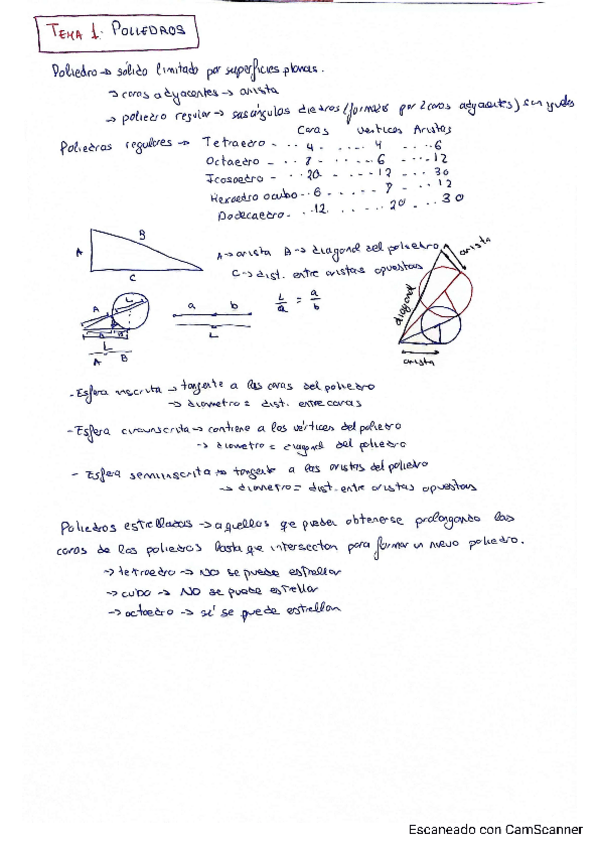 TEMA 1: POLIEDROS
Poliedro → sólido limitado por superficies planas.
→ caras adyacentes → arista
→ poliedro regular → sus ángulos diedros (formados por 2 caras adyacentes) son iguales
Caras Vértices Aristas
Poliedros regulares → Tetraedro - .. 4 . ... . 4 . .. 6
Octaedro - .. 8 - .... 6 . ... 12
Icosaedro - .. 20 .... 12 ... 30
Hexaedro o cubo .. 6 ..... 8 . .. 12
Dodecaedro. .. 12 . ... 20 . .. 30
A B C
A → arista B → diagonal del poliedro
C → dist. entre aristas opuestas
arista
diagonal
arista
A L
L
A B
a b
L
L/a = a/b
- Esfera inscrita → tangente a las caras del poliedro
→ diametro = dist. entre caras
- Esfera circunscrita → contiene a los vértices del poliedro
→ diametro = diagonal del poliedro
- Esfera semiinscrita → tangente a las aristas del poliedro
→ diametro = dist. entre aristas opuestas
Poliedros estrellados → aquellos que pueden obtenerse prolongando las
caras de los poliedros hasta que intersectan para formar un nuevo poliedro.
→ tetraedro → NO se puede estrellar
→ cubo → NO se puede estrellar
→ octaedro → sí se puede estrellar
Escaneado con CamScanner